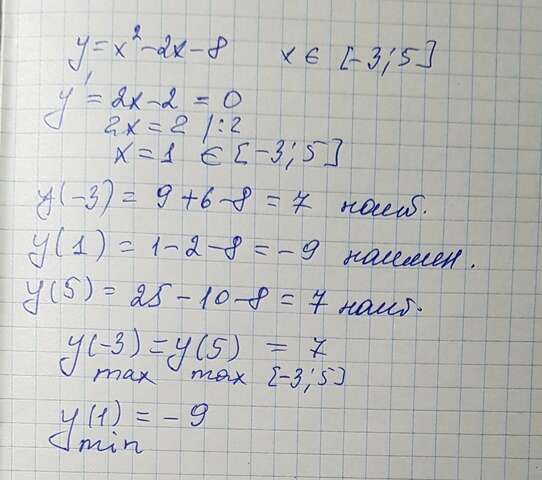 y = x² - 2x - 8 x ∈ [-3; 5]
y' = 2x - 2 = 0
2x = 2 /:2
x = 1 ∈ [-3; 5]
y(-3) = 9 + 6 - 8 = 7 наиб.
y(1) = 1 - 2 - 8 = -9 наимен.
y(5) = 25 - 10 - 8 = 7 наиб.
y(-3) = y(5) = 7
max max [-3; 5]
y(1) = -9
min